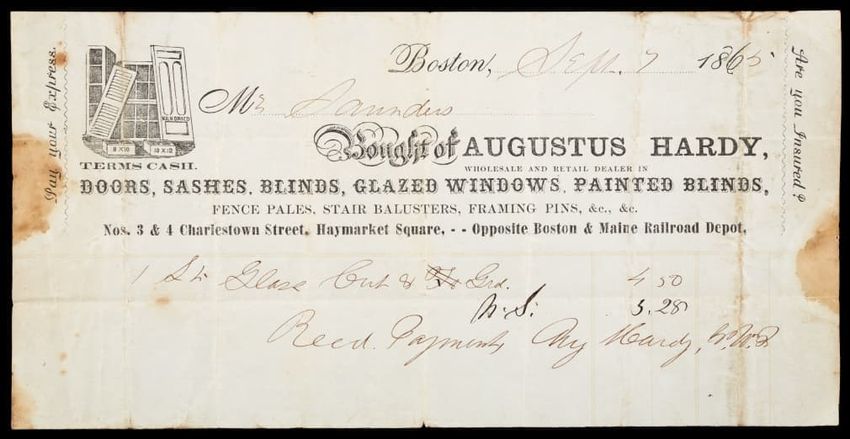 Pay your Express.
Are you Insured?
KILN DRIED
8 X 10
10 X 12
TERMS CASH.
Boston, Sept. 7 1865
Mr Saunders
Bought of AUGUSTUS HARDY,
WHOLESALE AND RETAIL DEALER IN
DOORS, SASHES, BLINDS, GLAZED WINDOWS, PAINTED BLINDS,
FENCE PALES, STAIR BALUSTERS, FRAMING PINS, &c., &c.
Nos. 3 & 4 Charlestown Street, Haymarket Square, - - Opposite Boston & Maine Railroad Depot.
1 Glass Cut & Grd. 4 50
N.S. 5.28
Recd. Payment Aug Hardy,